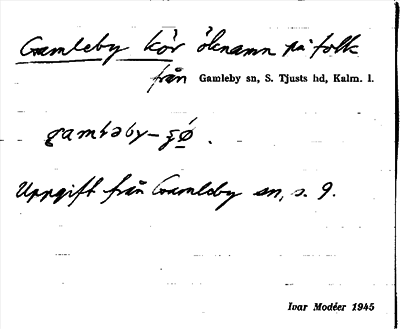 Gamleby kör öknamn på folk
från Gamleby sn, S. Tjusts hd, Kalm. l.
Uppgift från Gamleby sn, s. 9.
Ivar Modéer 1945